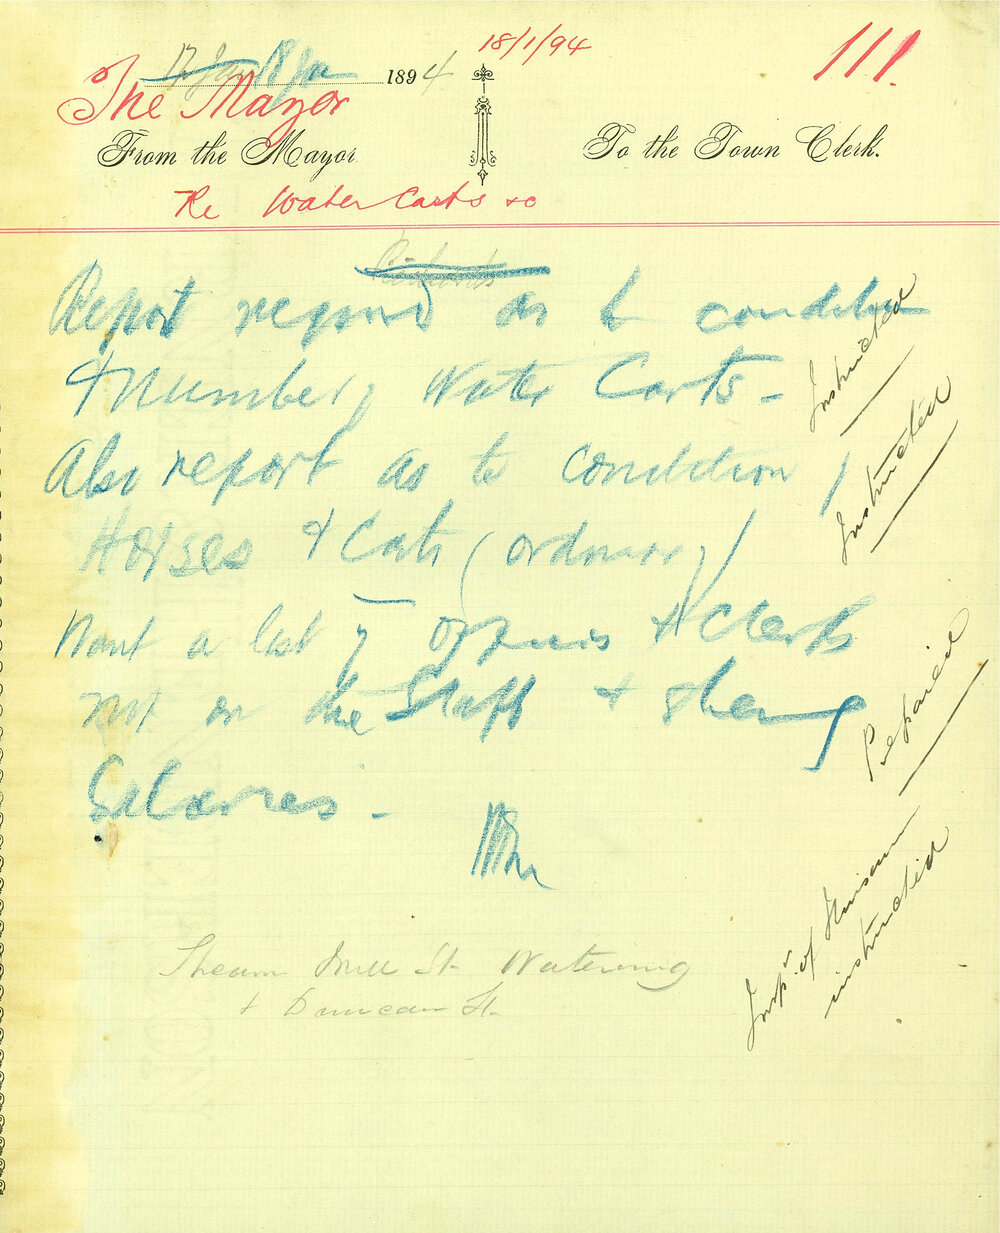 18/1/94
111.
12 Jan 18 Jan 1894
The Mayor
From the Mayor
To the Town Clerk.
Re Water Carts &c
Report required as to condition
& Number of Water Carts -
Also report as to condition of
Horses & Carts (ordinary)
Want a list of Officers & Clerks
not on the Staff & their
Salaries -
Instructed
Instructed
Prepared
Inspr. of Nuisan
instructed
Steam Mill St. Watering
& Duncan St.